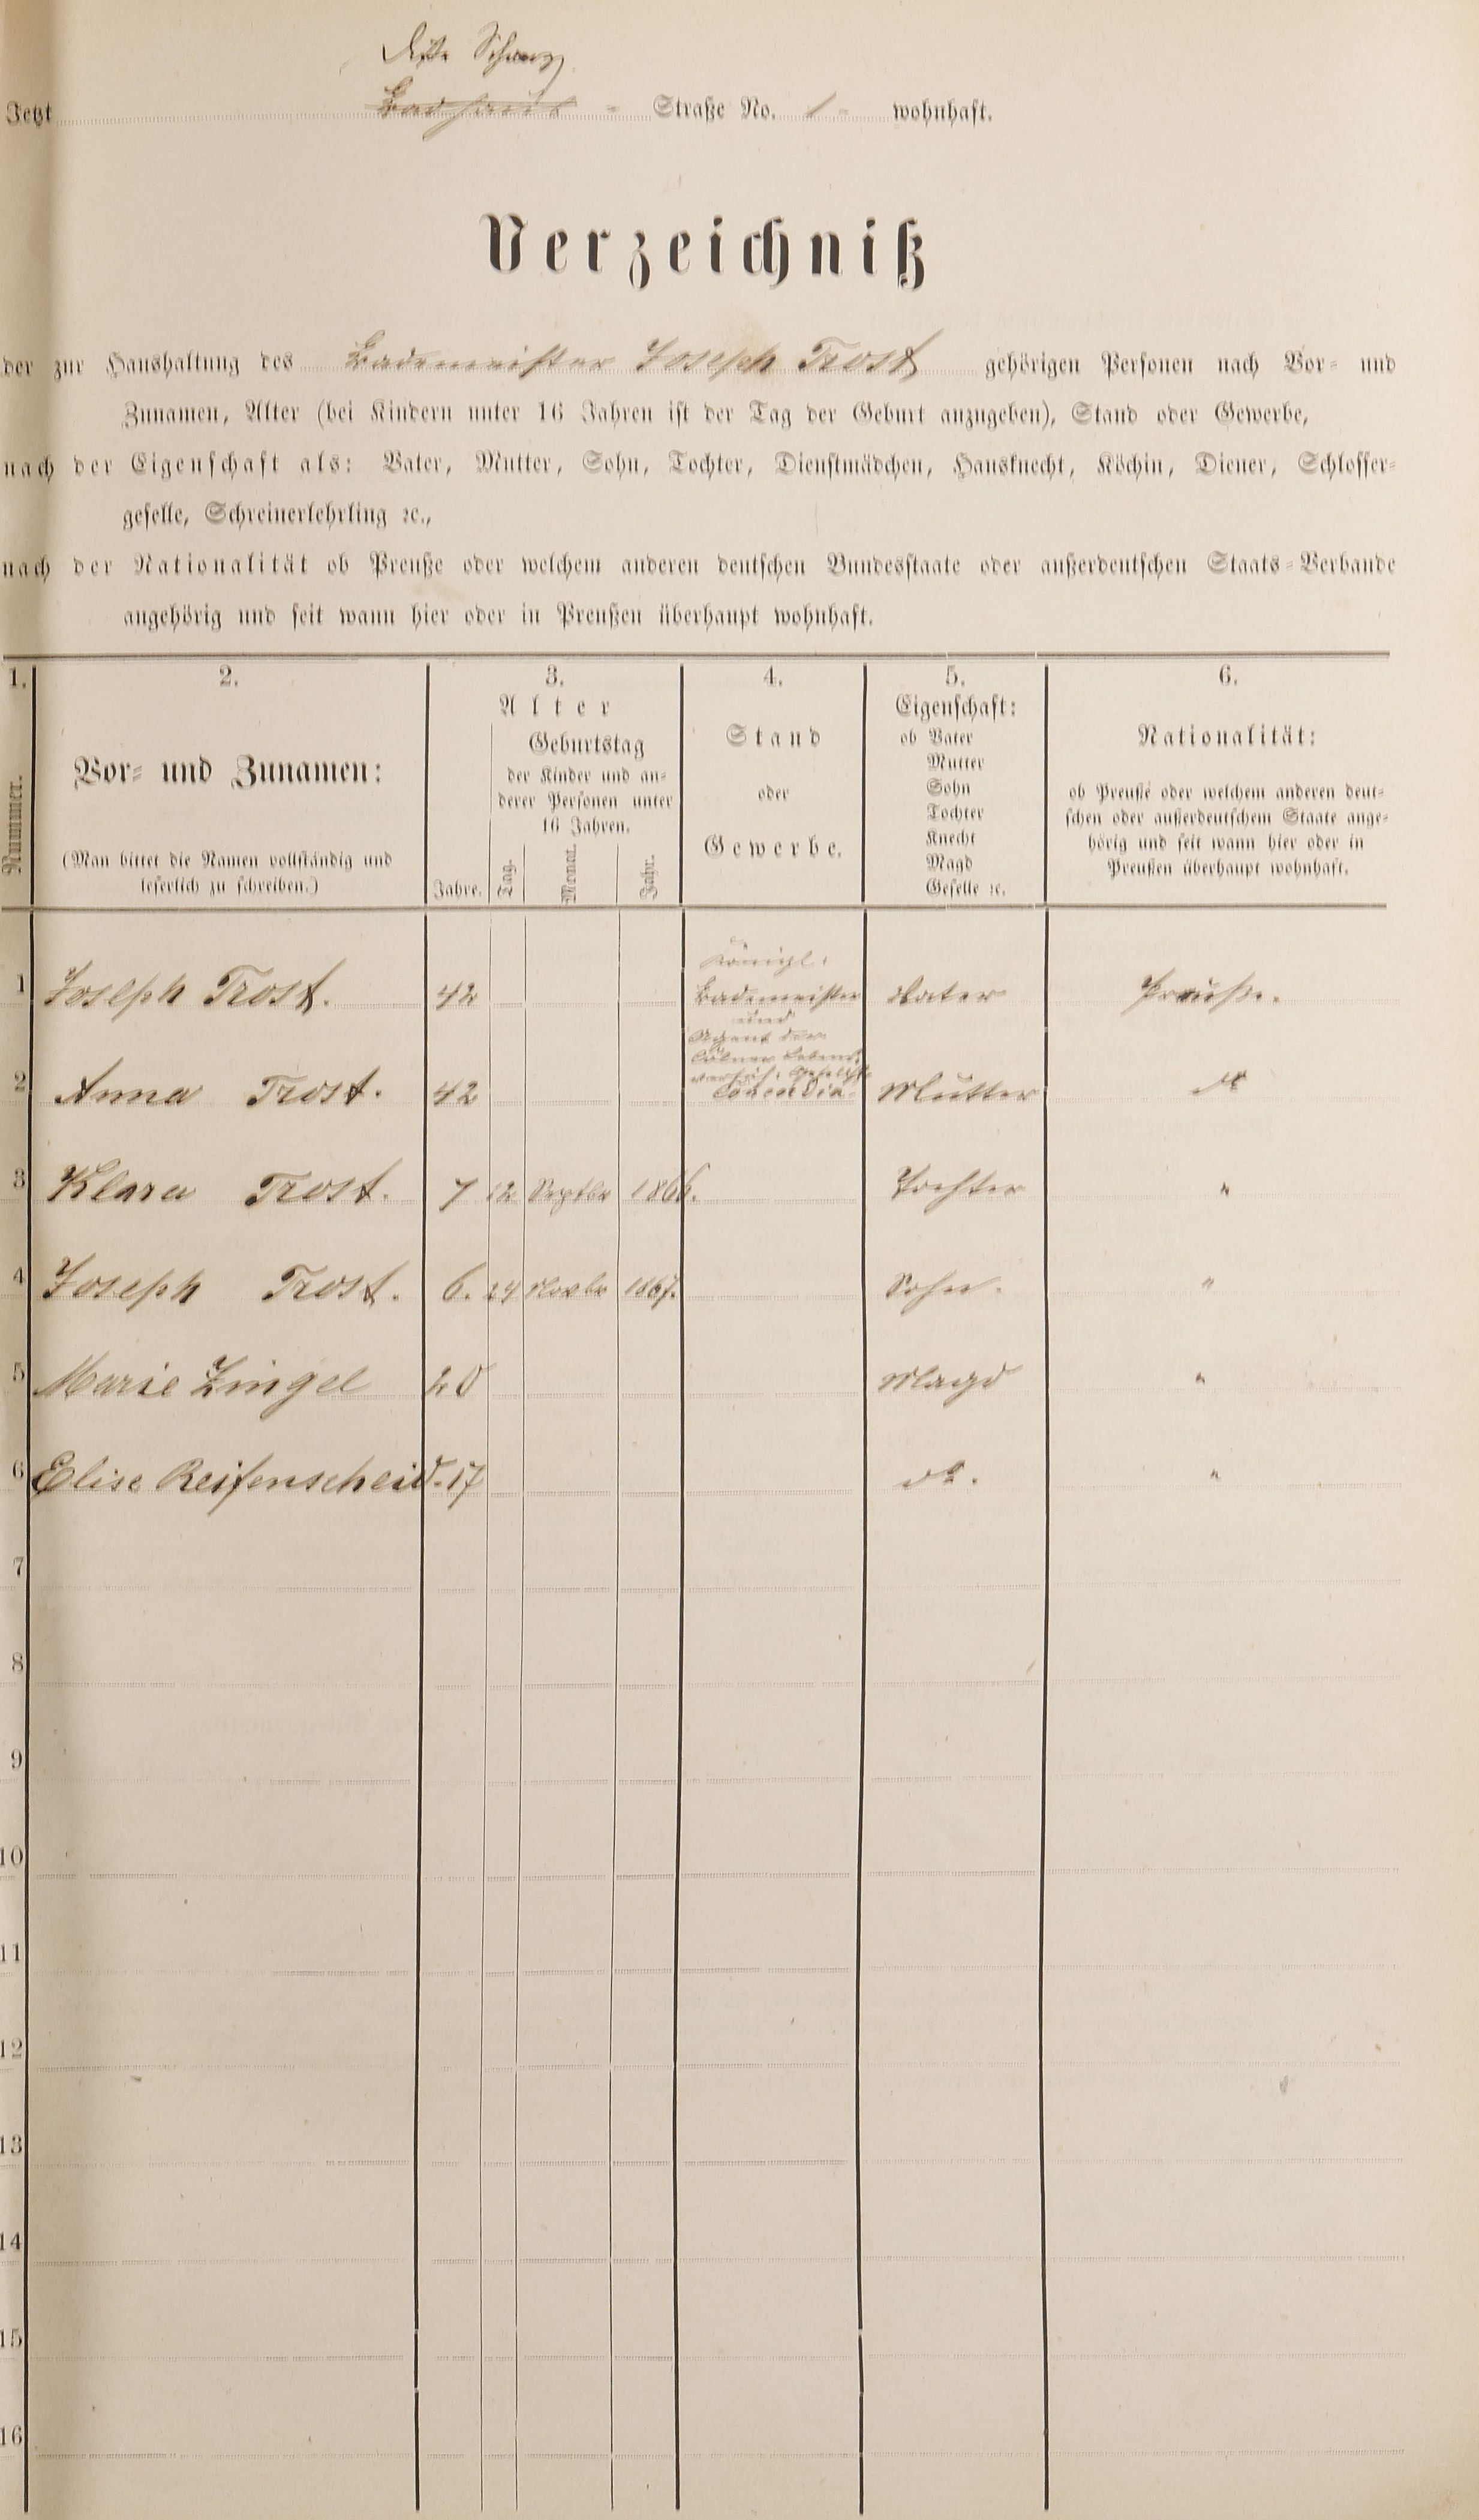 Alte Schanz
Jetzt Badhaus - Straße No. 1 - wohnhaft.
Verzeichniß
der zur Haushaltung des Bademeister Joseph Trost gehörigen Personen nach Vor- und
Zunamen, Alter (bei Kindern unter 16 Jahren ist der Tag der Geburt anzugeben), Stand oder Gewerbe,
nach der Eigenschaft als: Vater, Mutter, Sohn, Tochter, Dienstmädchen, Hausknecht, Köchin, Diener, Schlosser-
geselle, Schreinerlehrling ꝛc.,
nach der Nationalität ob Preuße oder welchem anderen deutschen Bundesstaate oder außerdeutschen Staats-Verbande
angehörig und seit wann hier oder in Preußen überhaupt wohnhaft.
1. 2. 3. 4. 5. 6.
Nummer.
Vor- und Zunamen:
(Man bittet die Namen vollständig und
leserlich zu schreiben.)
Alter
Geburtstag
der Kinder und an-
derer Personen unter
16 Jahren.
Jahre. Tag. Monat. Jahr.
Stand
oder
Gewerbe.
Eigenschaft:
ob Vater
Mutter
Sohn
Tochter
Knecht
Magd
Geselle ꝛc.
Nationalität:
ob Preuße oder welchem anderen deut-
schen oder außerdeutschem Staate ange-
hörig und seit wann hier oder in
Preußen überhaupt wohnhaft.
Königl.
1 Joseph Trost. 42 Bademeister Vater Preuße.
und
Agent der
Cölner Lebens
versich. Gesellsch
2 Anna Trost. 42 Concordia. Mutter do
3 Klara Trost. 7 12 Septbr 1866. Tochter "
4 Joseph Trost. 6. 24 Novbr 1867. Sohn. "
5 Marie Zingel 20 Magd "
6 Elise Reifenscheid. 17 do. "
7
8
9
10
11
12
13
14
15
16